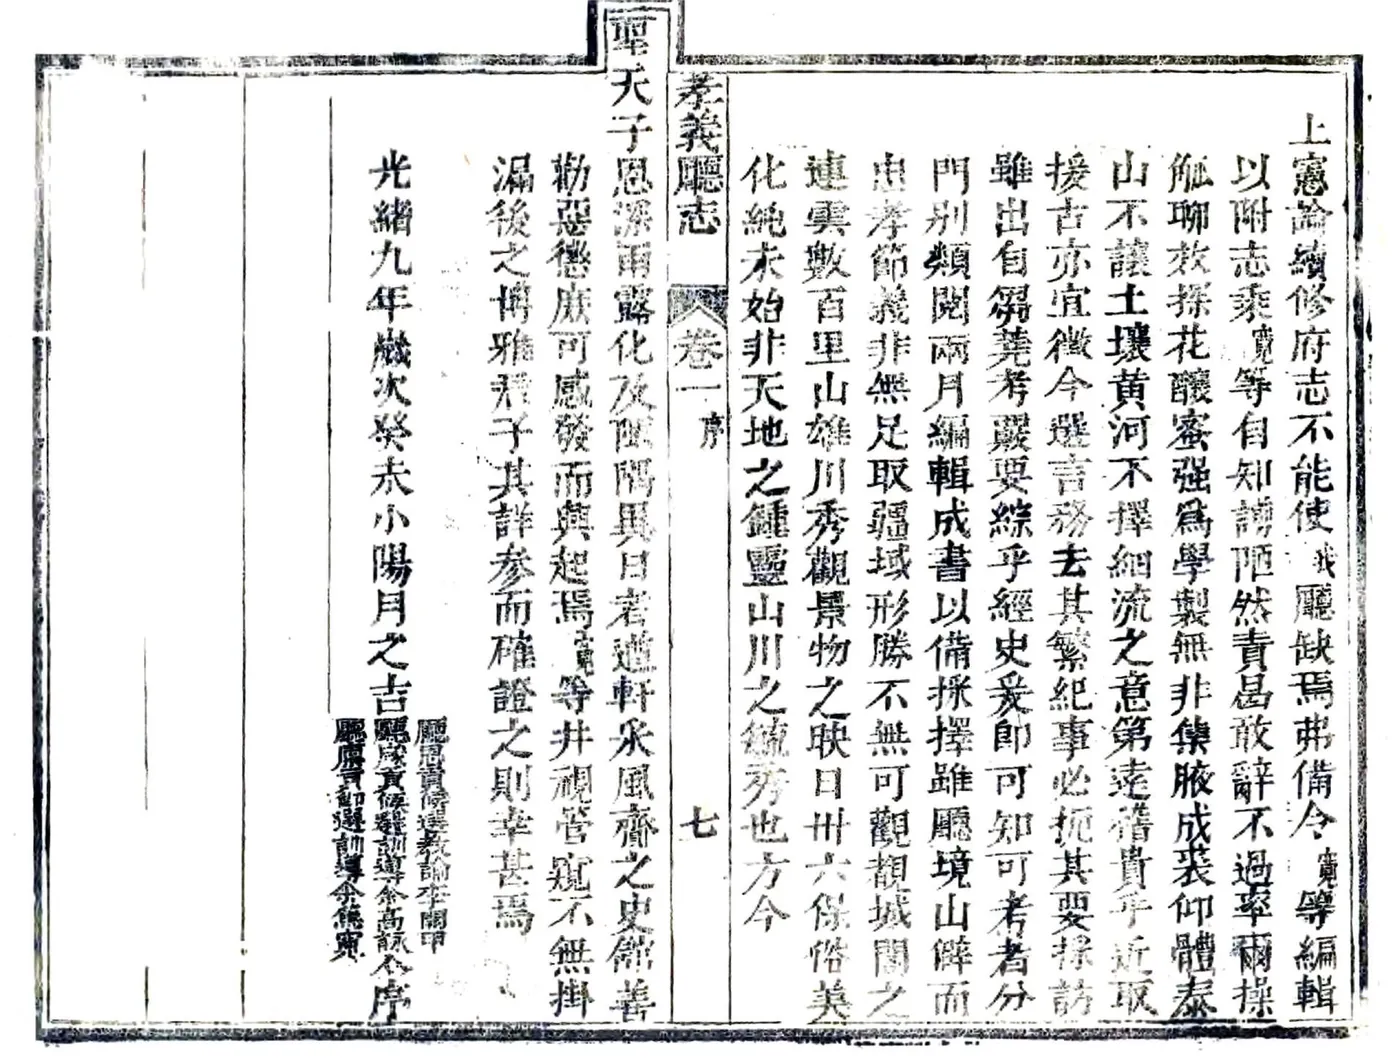 上憲諭續修府志不能使我廳缺焉弗備令寬等編輯
以附志乘寬等自知譾陋然責曷敢辭不過率爾操
觚聊效採花釀蜜强爲學製無非集腋成裘仰體泰
山不讓土壤黄河不擇細流之意第遠稽貴乎近取
援古亦宜徵今選言務去其繁紀事必扼其要採訪
雖出自芻蕘考覈要綜乎經史爰卽可知可考者分
門别類閱兩月編輯成書以備採擇雖廳境山僻而
忠孝節義非無足取疆域形勝不無可觀覩城闉之
連雲數百里山雄川秀觀景物之映日卌六保俗美
化純未始非天地之鍾靈山川之毓秀也方今
孝義廳志 卷一 序 七
聖天子恩深雨露化及陬隅異日者遒軒采風齎之史館善
勸惡懲庶可感發而興起焉寬等井視管窺不無掛
漏後之博雅君子其詳參而確證之則幸甚焉
光緒九年歲次癸未小陽月之吉
廳恩貢候選教諭李開甲
廳歲貢候選訓導余高詠仝序
廳廩貢卽選訓導余焦寬